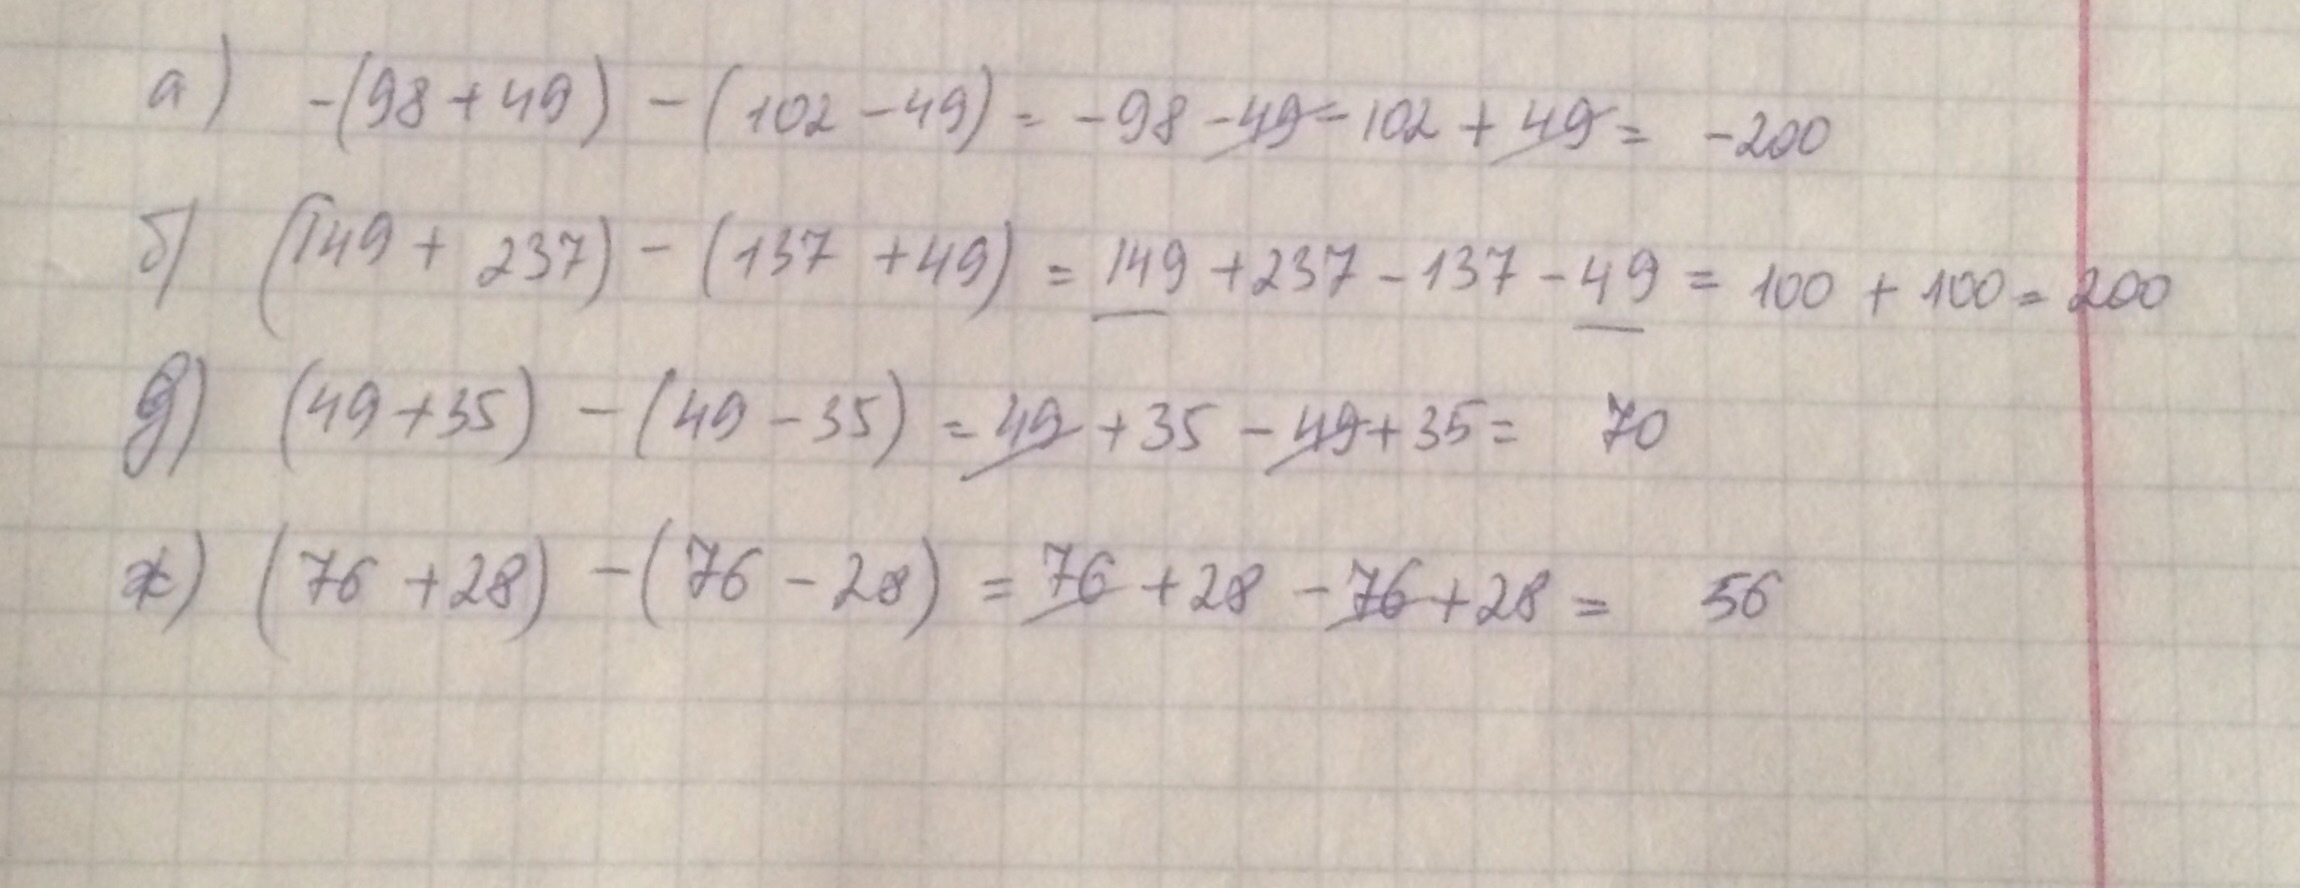 а) -(98+49) - (102-49) = -98-49-102+49 = -200
б) (149 + 237) - (137 + 49) = 149 + 237 - 137 - 49 = 100 + 100 = 200
д) (49+35) - (49-35) = 49 + 35 - 49 + 35 = 70
ж) (76 + 28) - (76 - 28) = 76 + 28 - 76 + 28 = 56